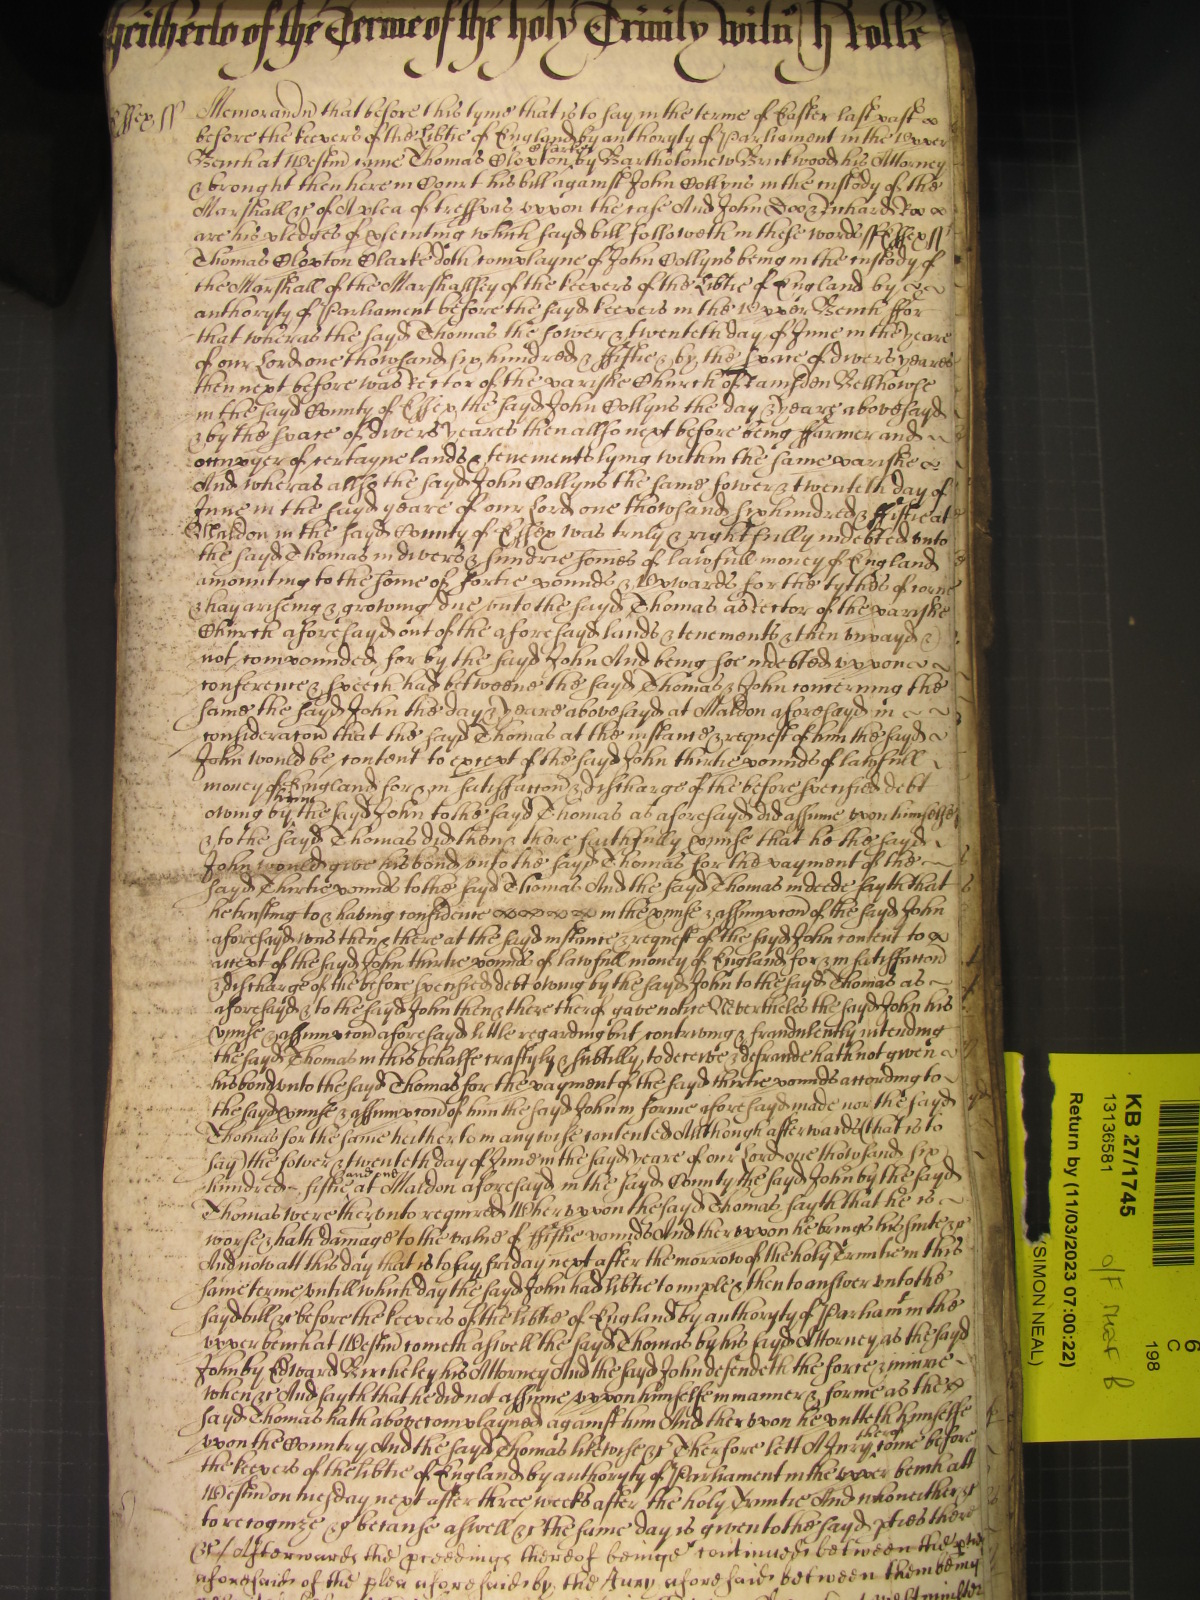 heitherto of the Terme of the holy Trinity witn H Rolle
Essex ss Memorandu that before this tyme that is to say in the terme of Easter last past
before the keepers of the Libtie of England by authoryty of Parliament in the Upper
Bench at Westm came Thomas Cloxton Clarke by Bartholomew Brickwood his Attorney
& brought then here in Court his bill against John Collyns in the custody of the
Marshall &c of A plea of trespas uppon the case And John Doo & Richard Roo
are his pledges of psecuting which sayd bill followeth in these words ss Essex ss
Thomas Cloxton Clarke doth complayne of John Collyns being in the custody of
the Marshall of the Marshallsey of the keepers of the Libtie of England by
authoryty of Parliament before the sayd keepers in the Upper Bench ffor
that wheras the sayd Thomas the fower & twenteth day of June in the yeare
of our Lord one thowsand six hundred & ffiftie & by the space of divers yeares
then next before was Rector of the parishe Church of Ramsden Bellhowse
in the sayd County of Essex the sayd John Collyns the day & yeare abovesayd
& by the space of divers yeares then allso next before being ffarmer and
occupyer of certayne lands & tenements lying within the same parishe
And wheras allso the sayd John Collyns the same fower & twenteth day of
June in the sayd yeare of our Lord one thowsand six hundred & ffiftie at
Maldon in the sayd County of Essex was truly & rightfully indebted unto
the sayd Thomas in divers & sundrie somes of lawfull money of England
amounting to the some of fortie pounds & Upwards for the tythes of corne
& hay ariseing & growing due unto the sayd Thomas as Rector of the parishe
Church aforesayd out of the aforesayd lands & tenements & then unpayd &
not compounded for by the sayd John And being soe indebted uppon
conference & speech had betweene the sayd Thomas & John concerning the
same the sayd John the day & yeare abovesayd at Maldon aforesayd in
consideracon that the sayd Thomas at the instance & request of him the sayd
John would be content to except of the sayd John thirtie pounds of lawfull
money of England for & in satisfaccon & discharge of the before specified debt
owing by him the sayd John to the sayd Thomas as aforesayd did assume upon himselfe
& to the sayd Thomas did then & there faithfully pmise that he the sayd
John would give his bond unto the sayd Thomas for the payment of the
sayd Thirtie pounds to the sayd Thomas And the sayd Thomas indeede sayth that
he trusting to & having confidence in the pmise & assumpcon of the sayd John
aforesayd was then & there at the sayd instance & request of the sayd John content to
accept of the sayd John thirtie pounds of lawfull money of England for & in satisfaccon
& discharge of the before specified debt owing by the sayd John to the sayd Thomas as
aforesayd & to the sayd John then & there therof gave notice Nevertheles the sayd John his
pmise & assumpcon aforesayd little regarding but contriving & fraudulently intending
the sayd Thomas in this behalfe craftyly & subtilly to deceive & defraude hath not given
his bond unto the sayd Thomas for the payment of the sayd thirtie pounds according to
the sayd pmise & assumpcon of him the sayd John in forme aforesayd made nor the sayd
Thomas for the same heitherto in any wise contented Although afterwards (that is to
say) the fower & twenteth day of June in the sayd yeare of our Lord one thowsand six
hundred fiftie and one at Maldon aforesayd in the sayd County the sayd John by the sayd
Thomas were therunto required Wheruppon the sayd Thomas sayth that he is
worse & hath damage to the value of ffiftie pounds And theruppon he brings his suite &c
And now att this day that is to say friday next after the morrow of the holy Trinitie in this
same terme untill which day the sayd John had libtie to imple & then to answer unto the
sayd bill &c before the keepers of the libtie of England by authoryty of Parliamt in the
upper bench at Westm cometh aswell the sayd Thomas by his sayd Attorney as the sayd
John by Edward Bircheley his Attorney And the sayd John defendeth the force & injurie
when &c And sayth that he did not assume uppon himselfe in manner & forme as the
sayd Thomas hath above complayned against him And theruppon he putteth himselfe
upon the Country And the sayd Thomas likewise &c Therfore lett A Jury therof come before
the keepers of the libtie of England by authoryty of Parliament in the upper bench att
Westm on tuesday next after three weeks after the holy Trinitie And who neither &c
to recognize &c because aswell &c the same day is given to the sayd pties there
&c Afterwards the pceedings thereof beinge continued betweene the pties
aforesaid of the plea aforesaid by the Jury aforesaid between them being
KB 27/1745
13136581
Return by (11/03/2023 07:00:22)
(SIMON NEAL)
6
C
198